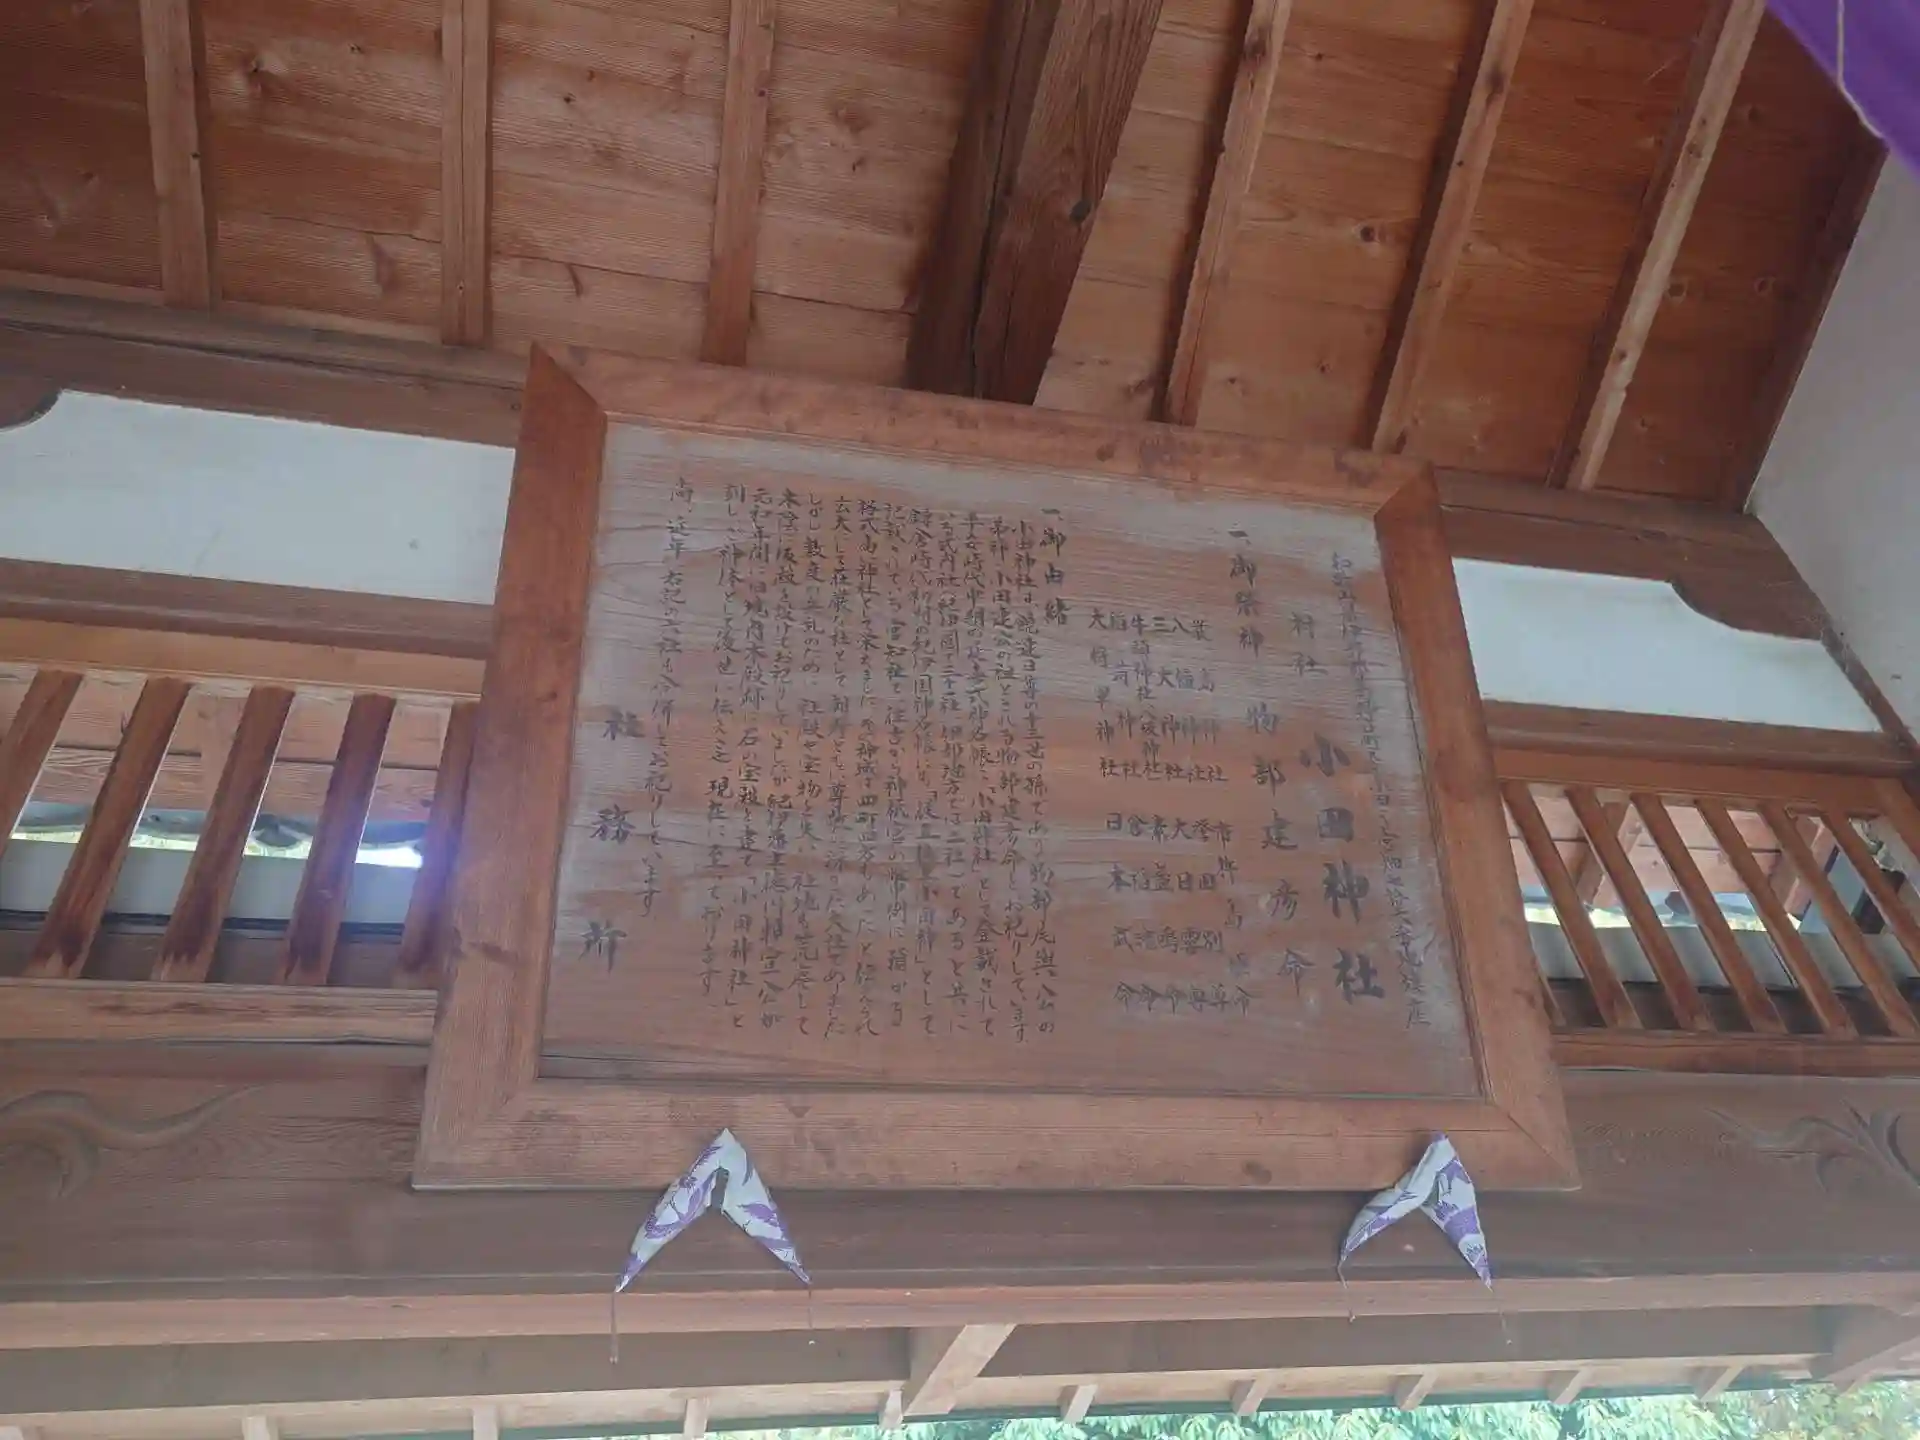 村社 小田神社
一、御祭神 物部建彦命
厳島神社 市杵島姫命
八幡神社 誉田別尊
三大神社 大日霊尊
牛頭神社 素盞嗚命
稲荷神社 倉稲魂命
大将軍神社 日本武命
一、御由緒
小田神社は、饒速日尊の十三世の孫であり物部尾輿公の
弟神、小田連公の祖とされる物部建彦命をお祀りしています
平安時代中期の延喜式神名帳に「小田神社」として登載されて
いる式内社(紀伊国で三十一社、伊都地方では二社)であると共に
鎌倉時代初期の紀伊国神名帳にも「従五位上小田神」として
記載されている官知社で、往古から神祇官の幣例に預かる
格式高い神社として栄えました その神域は四町四方もあったと伝えられ
広大にして荘厳な社として朝野ともに尊敬
しかし数度の兵乱のため、社殿や宝物を失い、社地も荒廃して
木陰に仮殿を設けてお祀りしていましたが紀伊藩主徳川頼宣公が
元和年間に旧境内本殿跡に石の宝殿を建て「小田神社」と
刻し、ご神体として後世に伝え
現在に至って
尚、近年右記の六社も合併しお祀りしています
社務所